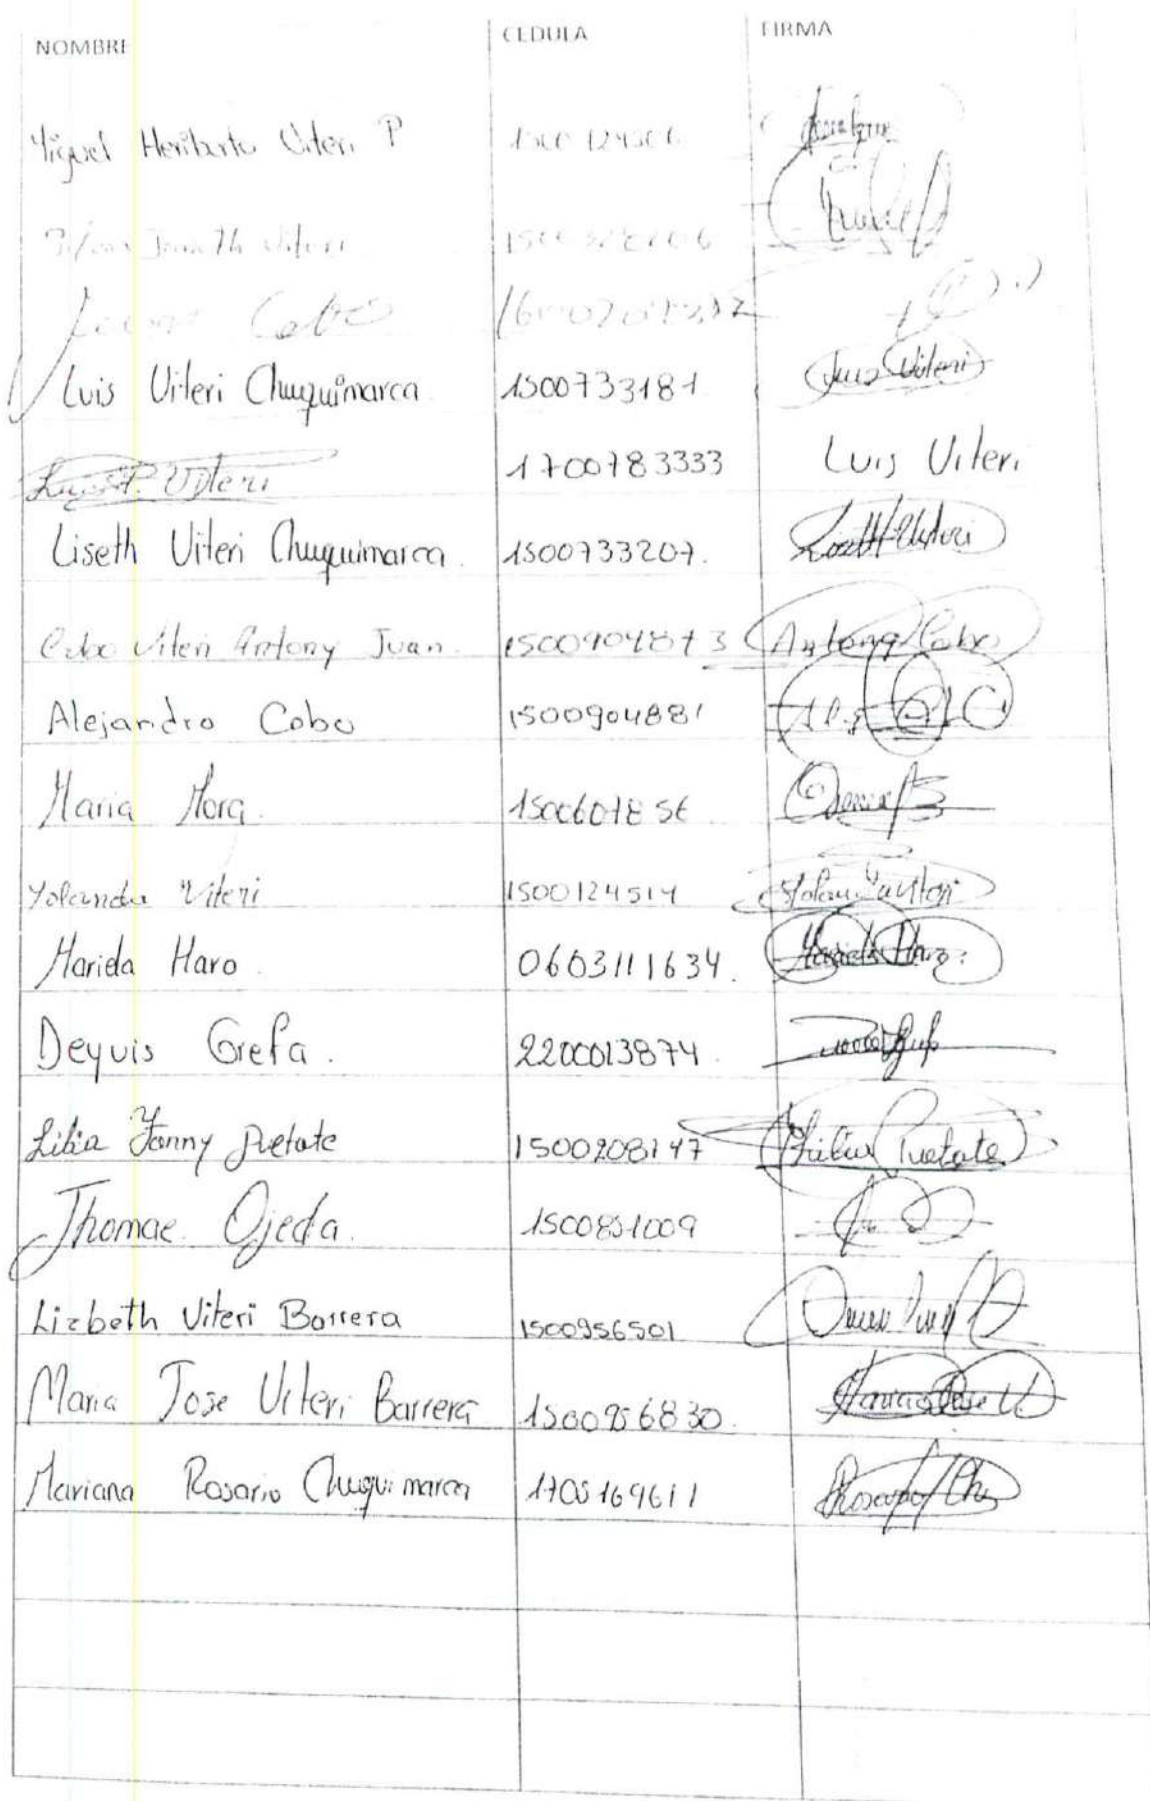 NOMBRE CEDULA FIRMA
Miguel Heriberto Viteri P
Viteri
Cobo
Luis Viteri Chuquimarca 1500733181 Luis Viteri
Luis P. Viteri 1700783333 Luis Viteri
Liseth Viteri Chuquimarca. 1500733207. Lizeth Viteri
Cobo Viteri Antony Juan. 1500904873 Antony Cobo
Alejandro Cobo 1500904881
Maria Mora.
Yolanda Viteri 1500124514 Yolanda Viteri
Mariela Haro. 0603111634. Mariela Haro
Deyuis Grefa. 2200013874.
Lilia Fanny Puetate 1500208147 Lilia Puetate
Thomae. Ojeda. 1500851009
Lizbeth Viteri Barrera 1500956501
Maria Jose Viteri Barrera 1500956830. Maria Jose V
Mariana Rosario Chuquimarca 1705169611